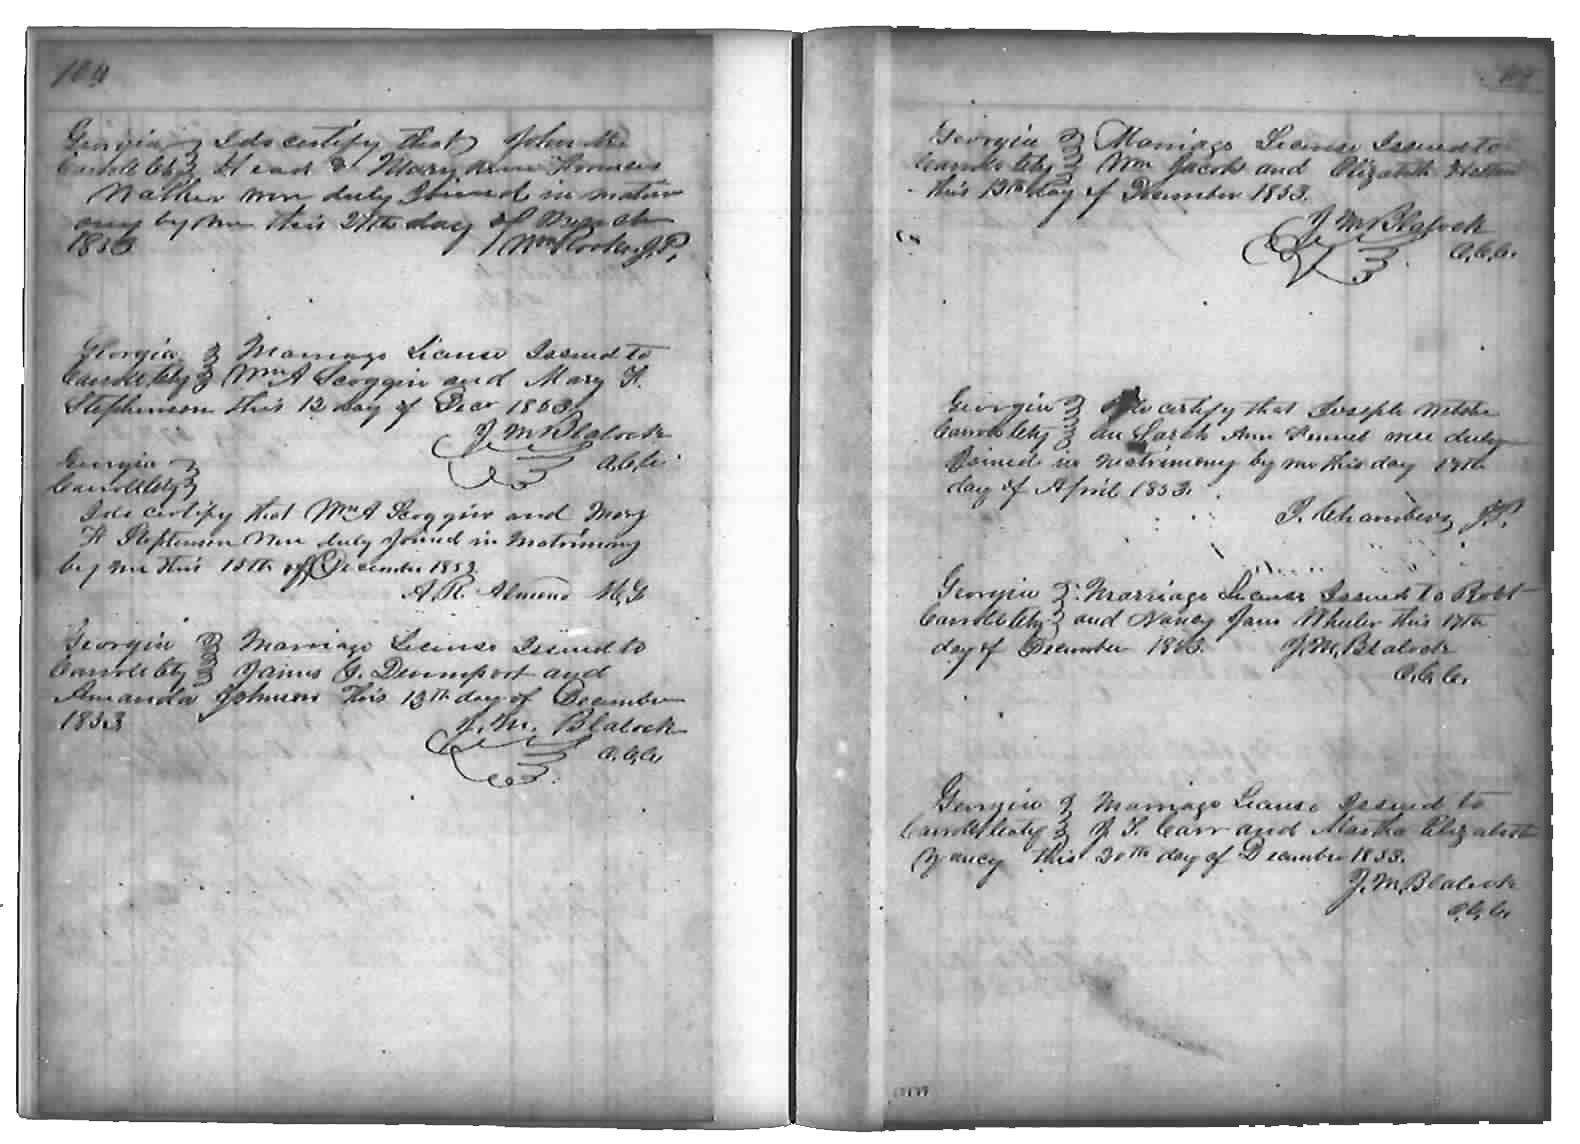 104
Georgia I do certify that John M
Carroll Cty Head & Mary Ann Frances
Walker were duly Joined in matrim
ony by me this 27th day of
1853 Wm J.P.
Georgia Marriage License Issued to
Carroll Cty Wm A Scoggin and Mary F.
Stephenson this 13 day of Decr 1853
J M Blalock
C.C.C.
Georgia
Carroll Cty
I do certify that Wm A Scoggin and Mary
F Stephenson were duly Joined in Matrimony
by me this 15th of December 1853
A. R. Almond M.G
Georgia Marriage License Issued to
Carroll Cty James J. Devenport and
Amanda Johnson this 13th day of December
1853
J. M. Blalock
C.C.C.
Georgia Marriage License Issued to
Carroll Cty Wm Jacobs and Elizabeth
this 13th day of December 1853.
J M Blalock
C.C.C.
Georgia I do certify that Joseph
Carroll Cty an Sarah Ann were duly
Joined in Matrimony by me this day 17th
day of April 1853.
J. Chambers J.P.
Georgia Marriage License Issued to Robt
Carroll Cty and Nancy Jane Wheeler this 17th
day of December 1853. J. M. Blalock
C.C.C.
Georgia Marriage License Issued to
Carroll County J. T. Carr and Martha Elizabeth
Yancy this 20th day of December 1853.
J. M Blalock
C.C.C.